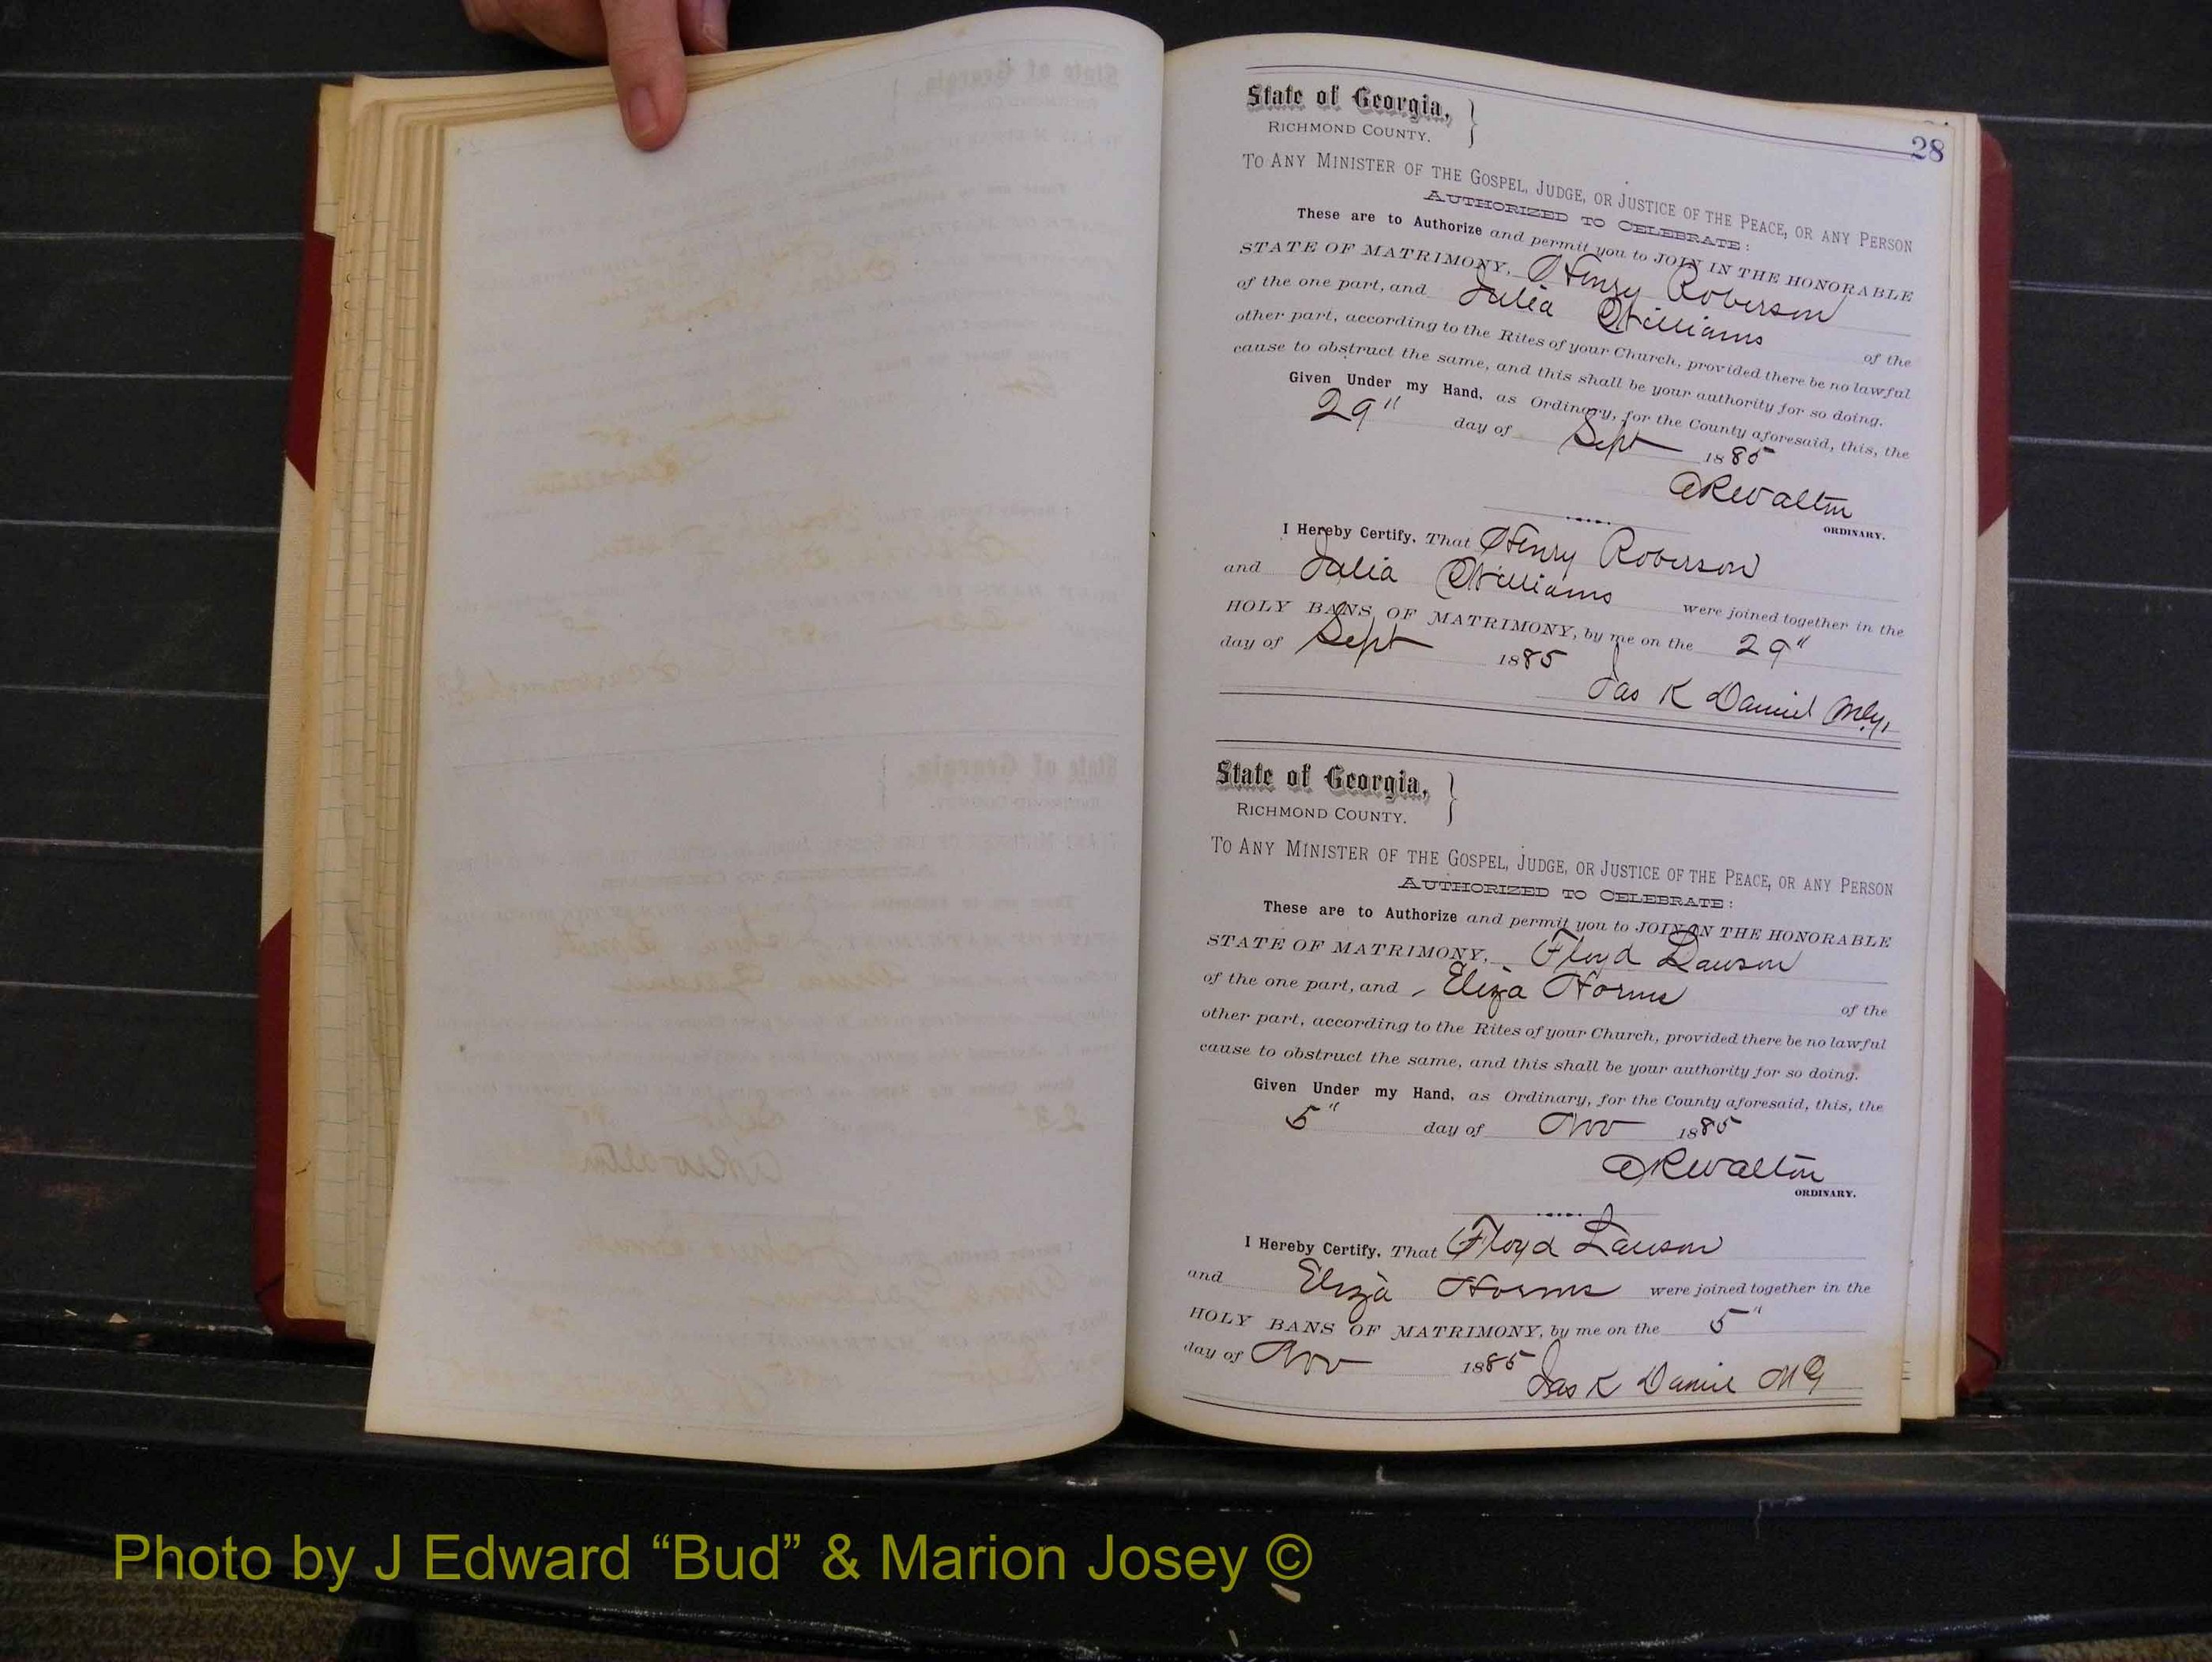 28
State of Georgia,
RICHMOND COUNTY.
TO ANY MINISTER OF THE GOSPEL, JUDGE, OR JUSTICE OF THE PEACE, OR ANY PERSON
AUTHORIZED TO CELEBRATE:
These are to Authorize and permit you to JOIN IN THE HONORABLE
STATE OF MATRIMONY, Henry Roberson
of the one part, and Julia Williams of the
other part, according to the Rites of your Church, provided there be no lawful
cause to obstruct the same, and this shall be your authority for so doing.
Given Under my Hand, as Ordinary, for the County aforesaid, this, the
29" day of Sept 1885
A R Walton
ORDINARY.
I Hereby Certify, That Henry Roberson
and Julia Williams were joined together in the
HOLY BANS OF MATRIMONY, by me on the 29"
day of Sept 1885
Jas K Daniel
State of Georgia,
RICHMOND COUNTY.
TO ANY MINISTER OF THE GOSPEL, JUDGE, OR JUSTICE OF THE PEACE, OR ANY PERSON
AUTHORIZED TO CELEBRATE:
These are to Authorize and permit you to JOIN IN THE HONORABLE
STATE OF MATRIMONY, Floyd Dawson
of the one part, and Eliza Horns of the
other part, according to the Rites of your Church, provided there be no lawful
cause to obstruct the same, and this shall be your authority for so doing.
Given Under my Hand, as Ordinary, for the County aforesaid, this, the
5" day of Nov 1885
A R Walton
ORDINARY.
I Hereby Certify, That Floyd Lawson
and Eliza Horns were joined together in the
HOLY BANS OF MATRIMONY, by me on the 5"
day of Nov 1885
Jas K Daniel MG
Photo by J Edward “Bud” & Marion Josey ©